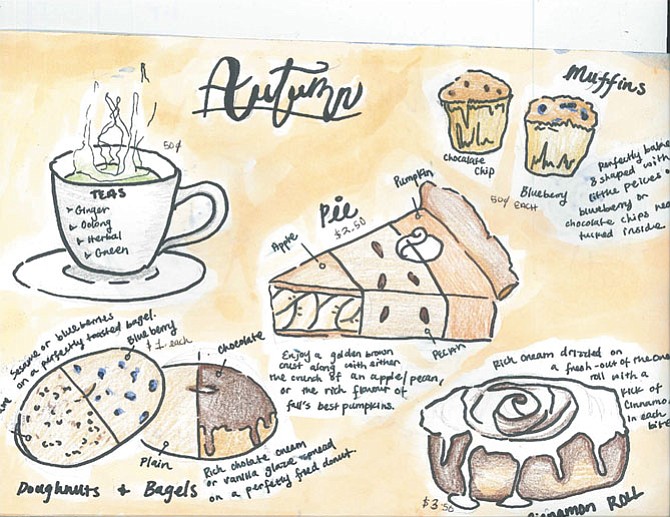 Autumn
Muffins
Chocolate
Chip
Blueberry
50¢ each
Perfectly
& shaped with
little peices of
blueberry or
chocolate chips
tucked inside.
50¢
TEAS
Ginger
Oolong
Herbal
Green
Pie
$2.50
Apple
Pumpkin
Pecan
Enjoy a golden brown
crust along with either
the crunch of an apple/pecan,
or the rich flavour of
fall's best pumpkins.
Sesame or blueberries
on a perfectly toasted bagel.
Blueberry
$1 each
Chocolate
Plain
Rich cholate cream
or vanilla glaze spread
on a perfectly fried donut.
Doughnuts + Bagels
Rich cream drizzled on
a fresh-out-of-the
roll with a
kick of
in each
$3.50
Cinnamon ROLL